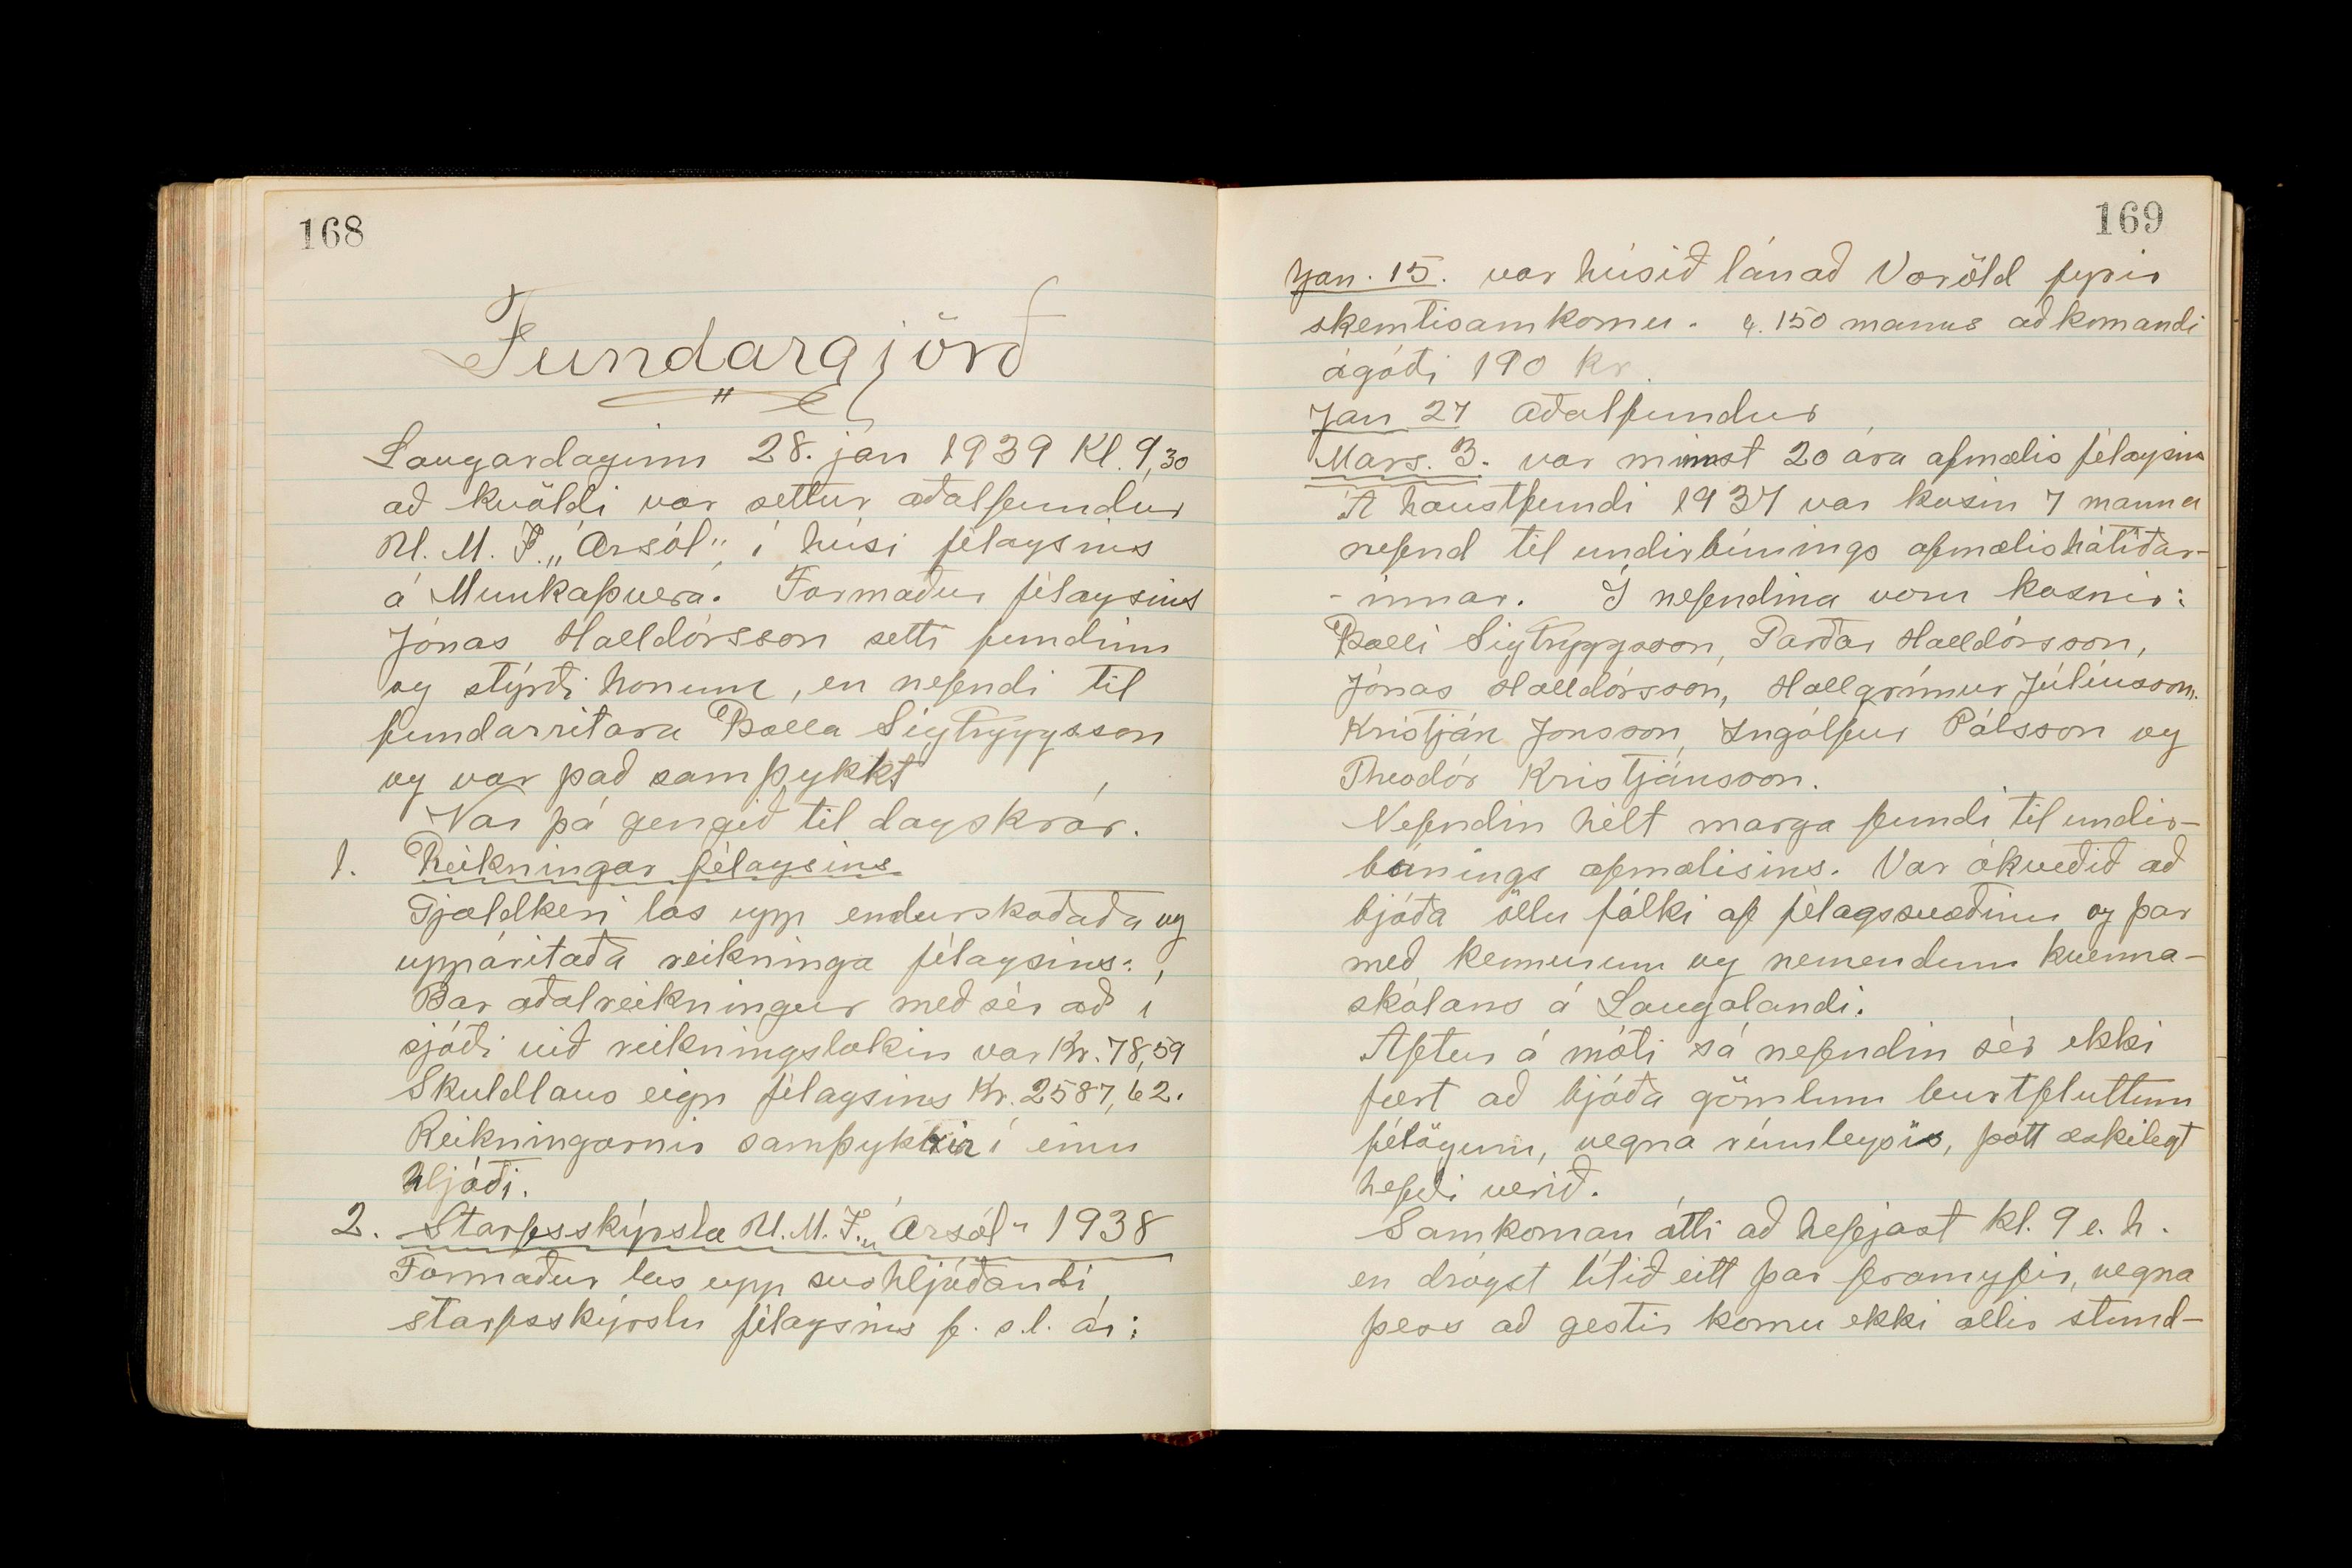 168
Fundargjörð
"
Laugardaginn 28. jan 1939 Kl. 9,30
að kvöldi var settur aðalfundur
U. M. F. „Ársól", í húsi félagsins
á Munkaþverá. Formaður félagsins
Jónas Halldórsson setti fundinn
og stýrði honum, en nefndi til
fundarritara Þralla Sigtryggsson
og var það samþykkt
Var þá gengið til dagskrár.
1. Reikningar félagsins
Gjaldkeri las upp endurskoðaða og
uppáritaða reikninga félagsins:
Bar aðalreikningur með sér að í
sjóði við reikningslokin var Kr. 78,59
Skuldlaus eign félagsins Kr. 2587,62.
Reikningarnir samþykktir í einu
hljóði.
2. Starfsskýrsla U. M. F. „Ársól" 1938
Formaður las upp svohljóðandi
starfsskýrslu félagsins f. s.l. ár:
169
Jan. 15. var húsið lánað Voröld fyrir
skemtisamkomu. c. 150 manns aðkomandi
ágóði 190 kr.
Jan 27 Aðalfundur
Mars. 3. var minnst 20 ára afmælis félagsins
Á haustfundi 1937 var kosin 7 manna
nefnd til undirbúnings afmælishátíðar-
-innar. Í nefndina voru kosnir:
Þralli Sigtryggsson, Garðar Halldórsson,
Jónas Halldórsson, Hallgrímur Júlíusson.
Kristján Jónsson, Ingólfur Pálsson og
Theodór Kristjánsson.
Nefndin hélt marga fundi til undir-
búnings afmælisins. Var ákveðið að
bjóða öllu fólki af félagssvæðinu og þar
með kennurum og nemendum kvenna-
skólans á Laugalandi.
Aftur á móti sá nefndin sér ekki
fært að bjóða gömlum burtfluttum
félögum, vegna rúmleysis, þótt æskilegt
hefði verið.
Samkoman átti að hefjast kl. 9 e. h.
en drógst lítið eitt þar framyfir, vegna
þess að gestir komu ekki allir stund-